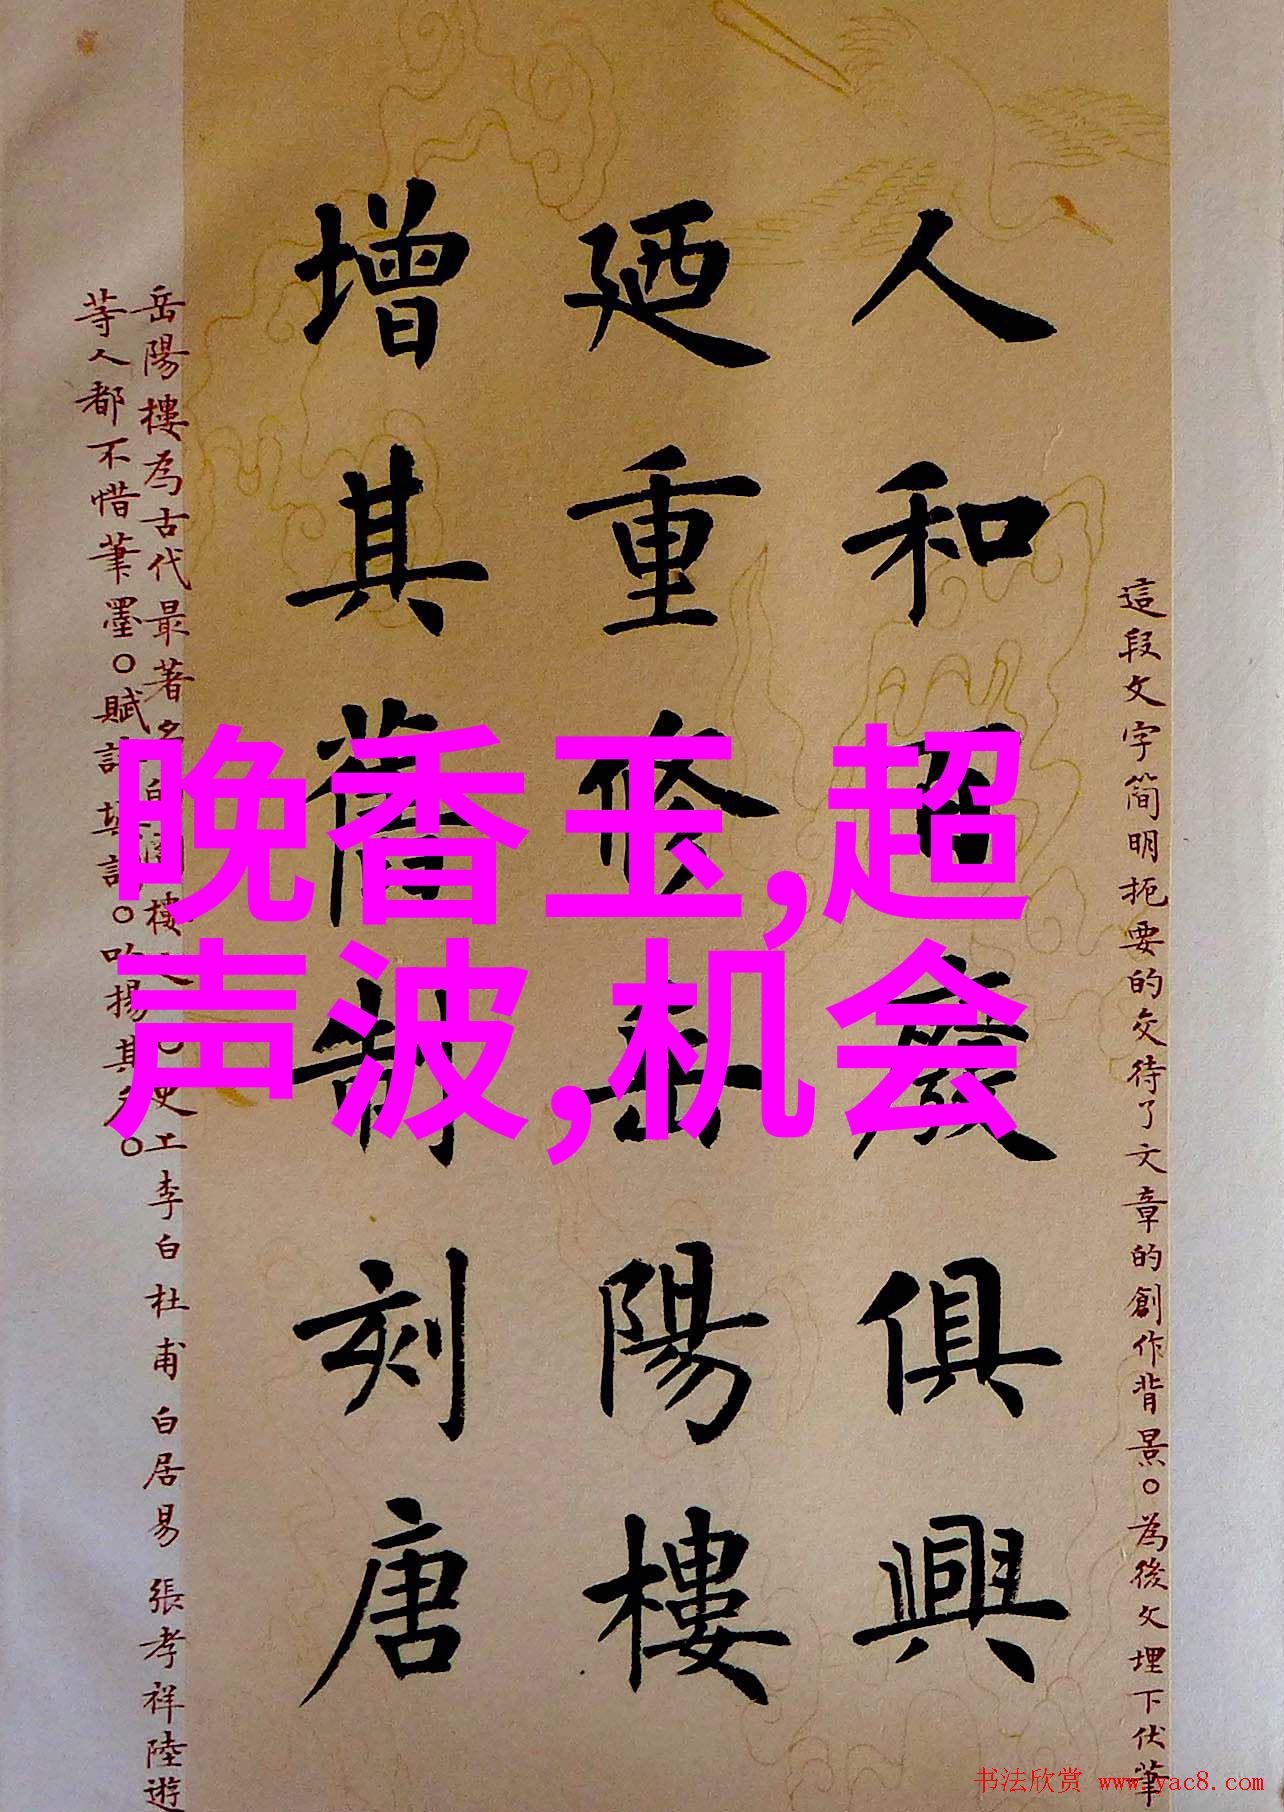 這段文字简明扼要的交待了文章的創作背景。為後文埋下伏筆
人和百廢俱興
廼重修岳陽樓
增其舊制刻唐
岳陽樓為古代最著名樓李白杜甫白居易張孝祥陸遊
等人都不惜筆墨。賦詩填詞。吟揚其名。
晚香玉,超
声波,机会
书法欣赏 www.yac8.com